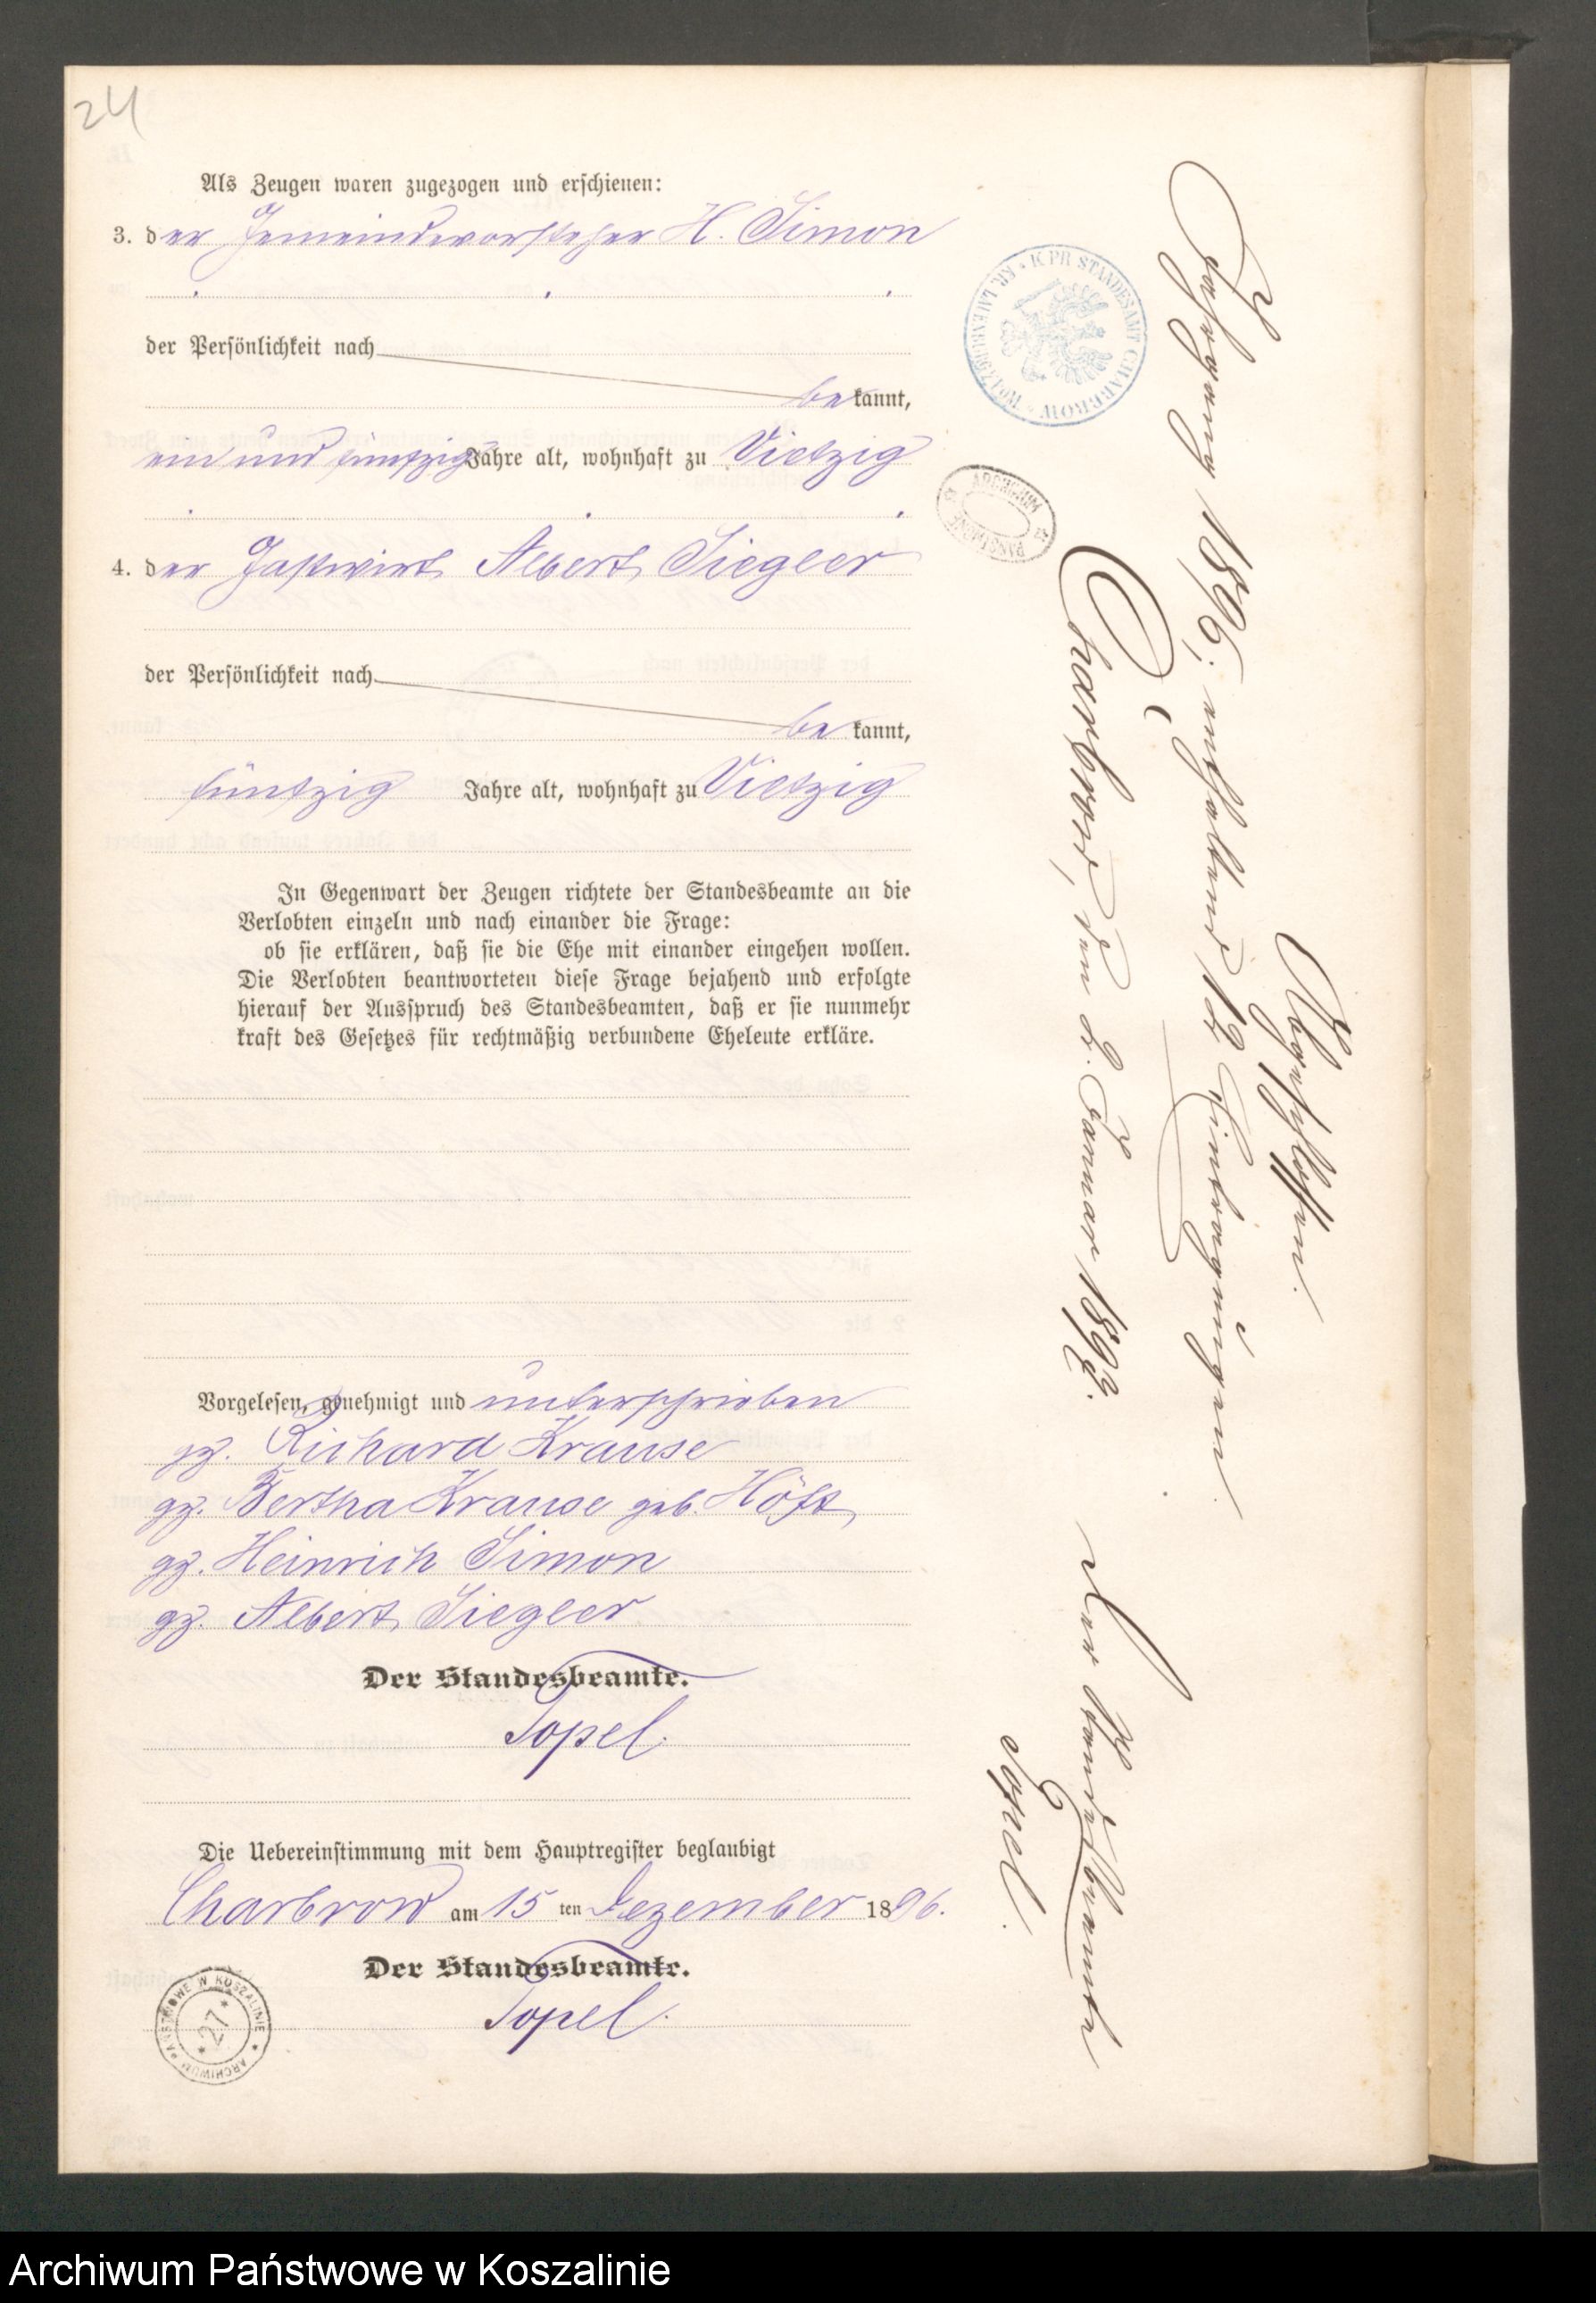 24
Als Zeugen waren zugezogen und erschienen:
3. der Gemeindevorsteher H. Simon
der Persönlichkeit nach
bekannt,
ein und fünfzig Jahre alt, wohnhaft zu Vietzig
4. der Gastwirt Albert Siegler
der Persönlichkeit nach
bekannt,
fünfzig Jahre alt, wohnhaft zu Vietzig
In Gegenwart der Zeugen richtete der Standesbeamte an die
Verlobten einzeln und nach einander die Frage:
ob sie erklären, daß sie die Ehe mit einander eingehen wollen.
Die Verlobten beantworteten diese Frage bejahend und erfolgte
hierauf der Ausspruch des Standesbeamten, daß er sie nunmehr
kraft des Gesetzes für rechtmäßig verbundene Eheleute erkläre.
Vorgelesen, genehmigt und unterschrieben
gz. Richard Krause
gz. Bertha Krause geb. Höft
gz. Heinrich Simon
gz. Albert Siegler
Der Standesbeamte.
Topel.
Die Uebereinstimmung mit dem Hauptregister beglaubigt
Charbrow am 15ten Dezember 1896.
Der Standesbeamte.
Topel.
ARCHIWUM PAŃSTWOWE W KOSZALINIE
27
Abgeschlossen.
Jahrgang 1896, enthaltend 12 Eintragungen.
Charbrow, den 2. Januar 1897.
Der Standesbeamte
Topel.
K. PR. STANDESAMT CHARBROW
ARCHIWUM
PAŃSTWOWE
Archiwum Państwowe w Koszalinie